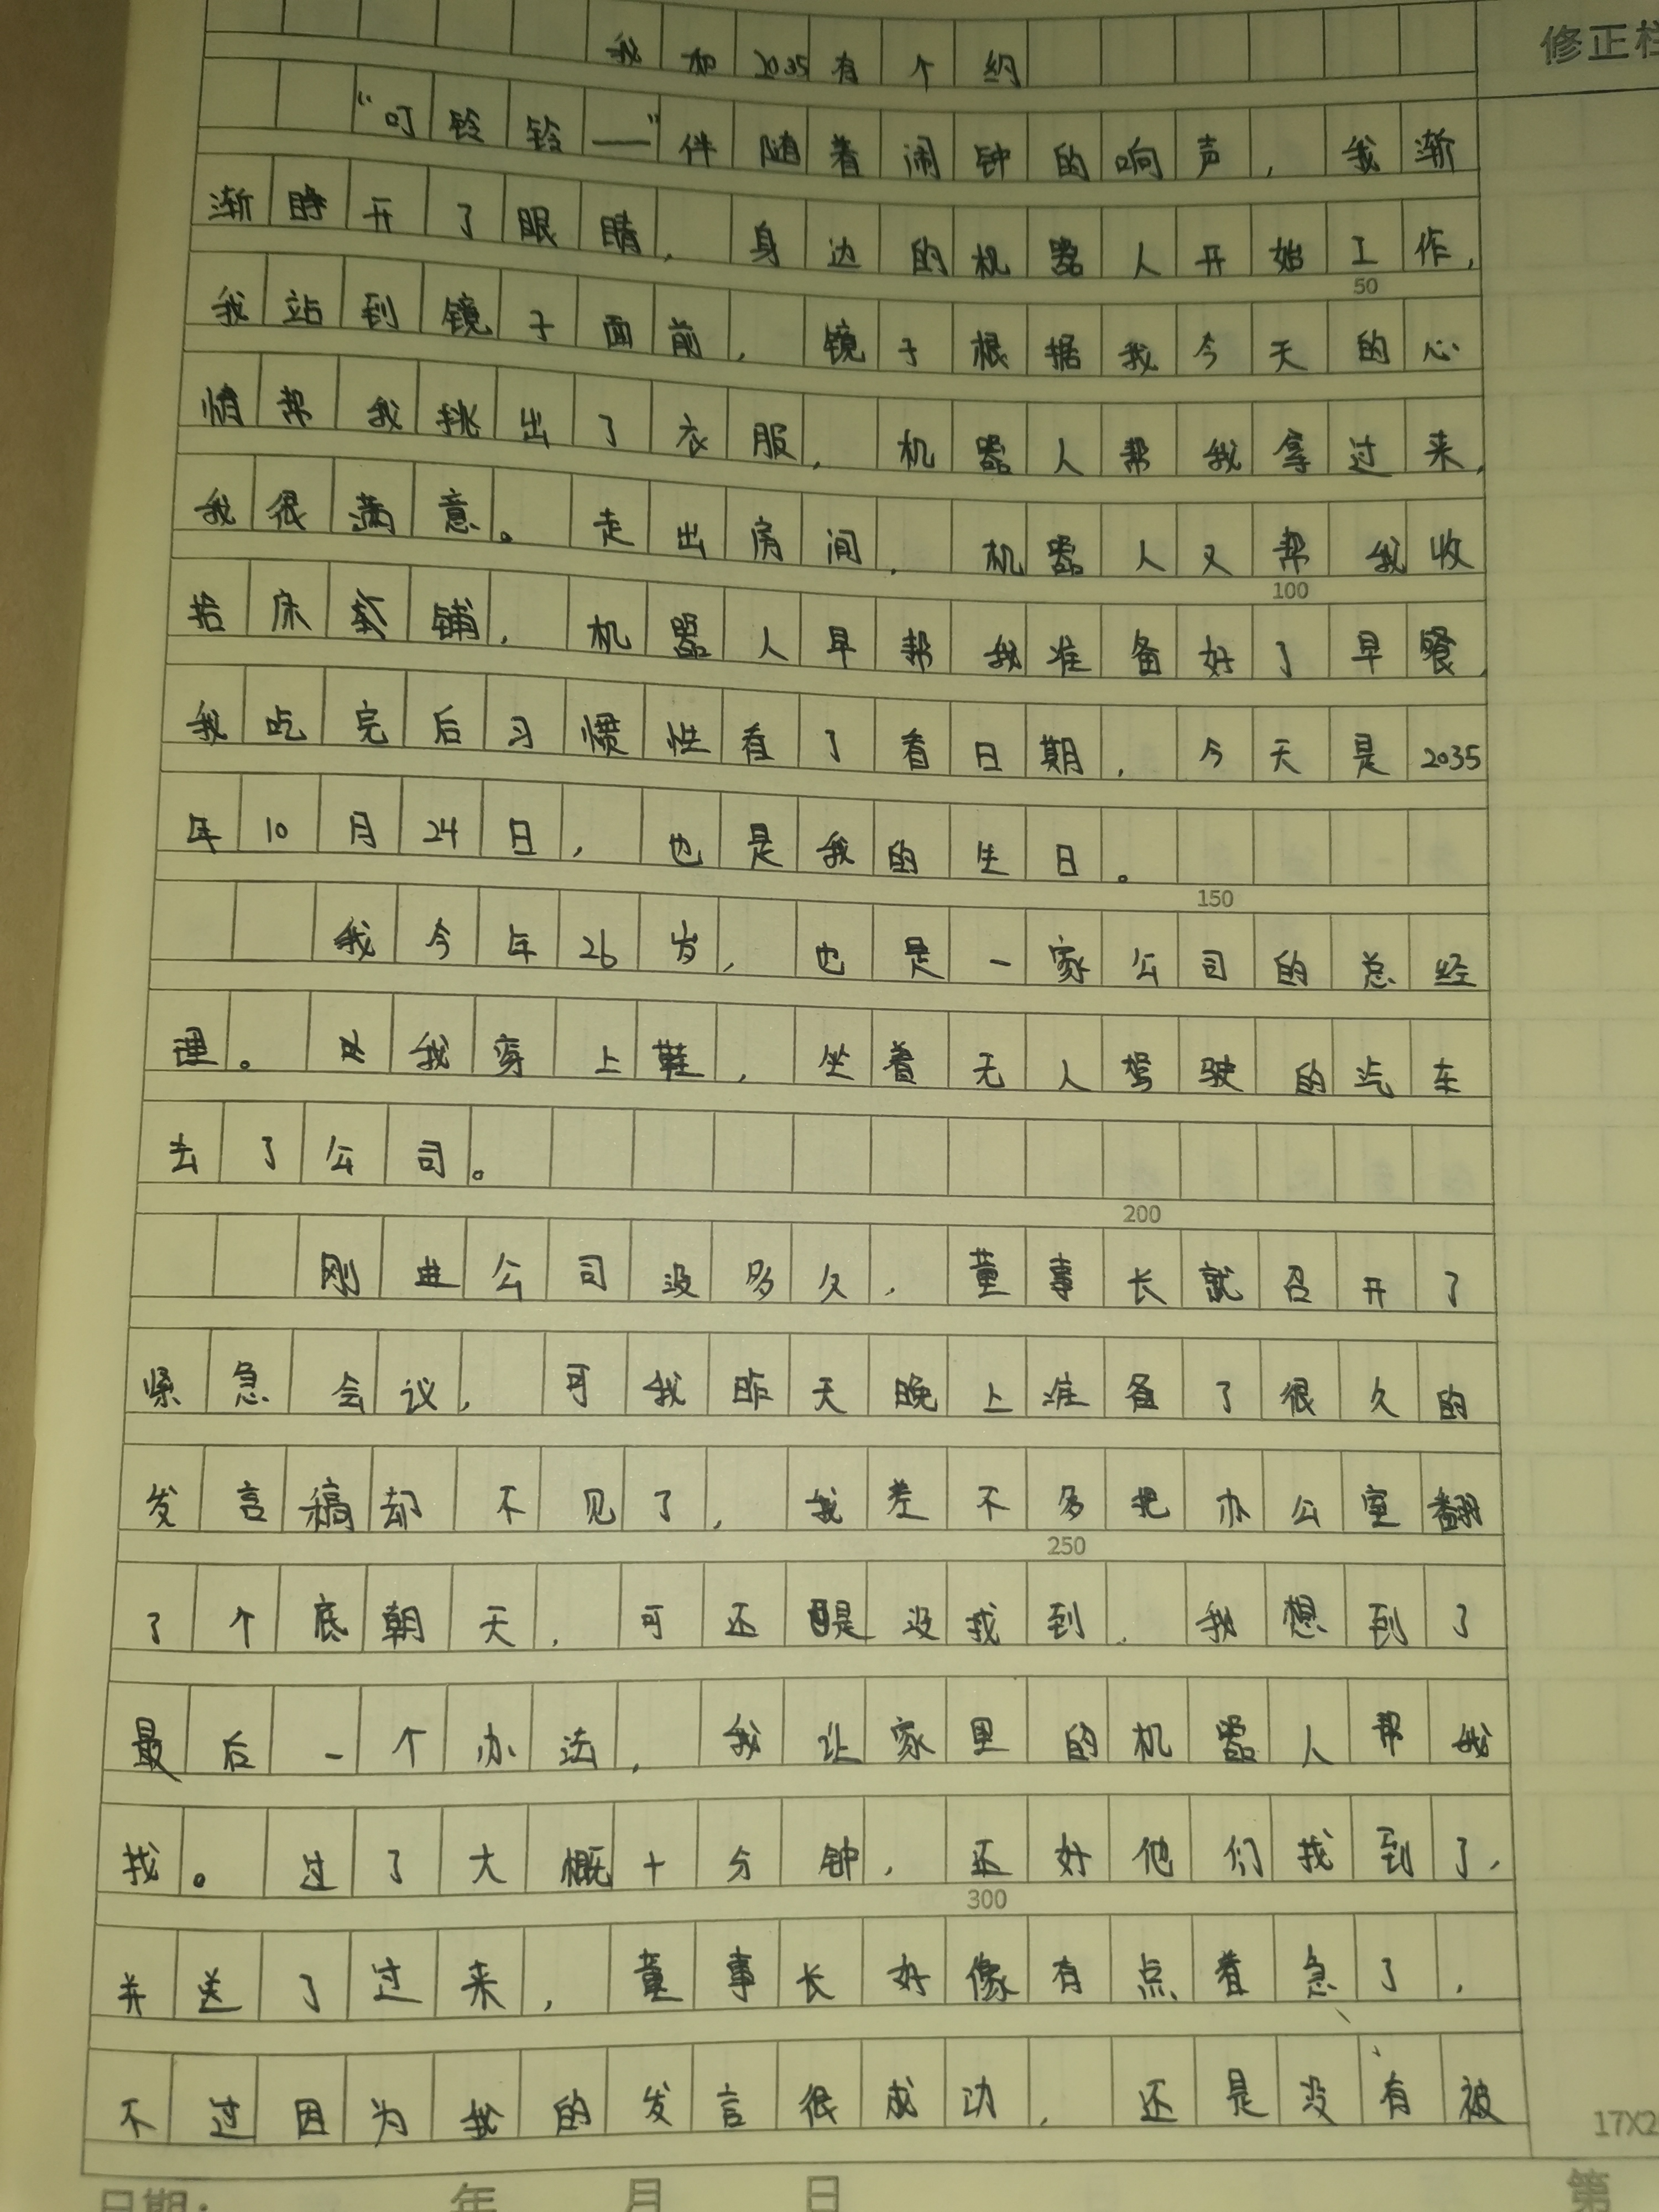 我和2035有个约
修正栏
“叮铃铃——”伴随着闹钟的响声，我渐
渐睁开了眼睛，身边的机器人开始工作，
50
我站到镜子面前，镜子根据我今天的心
情帮我挑出了衣服，机器人帮我拿过来，
我很满意。走出房间，机器人又帮我收
100
拾床铺，机器人早帮我准备好了早餐，
我吃完后习惯性看了看日期，今天是2035
年10月24日，也是我的生日。
150
我今年26岁，也是一家公司的总经
理。我穿上鞋，坐着无人驾驶的汽车
去了公司。
200
刚进公司没多久，董事长就召开了
紧急会议，可我昨天晚上准备了很久的
发言稿却不见了，我差不多把办公室翻
250
了个底朝天，可还是没找到，我想到了
最后一个办法，我让家里的机器人帮我
找。过了大概十分钟，还好他们找到了，
300
并送了过来，董事长好像有点着急了，
不过因为我的发言很成功，还是没有被
17X2
日期： 年 月 日 第